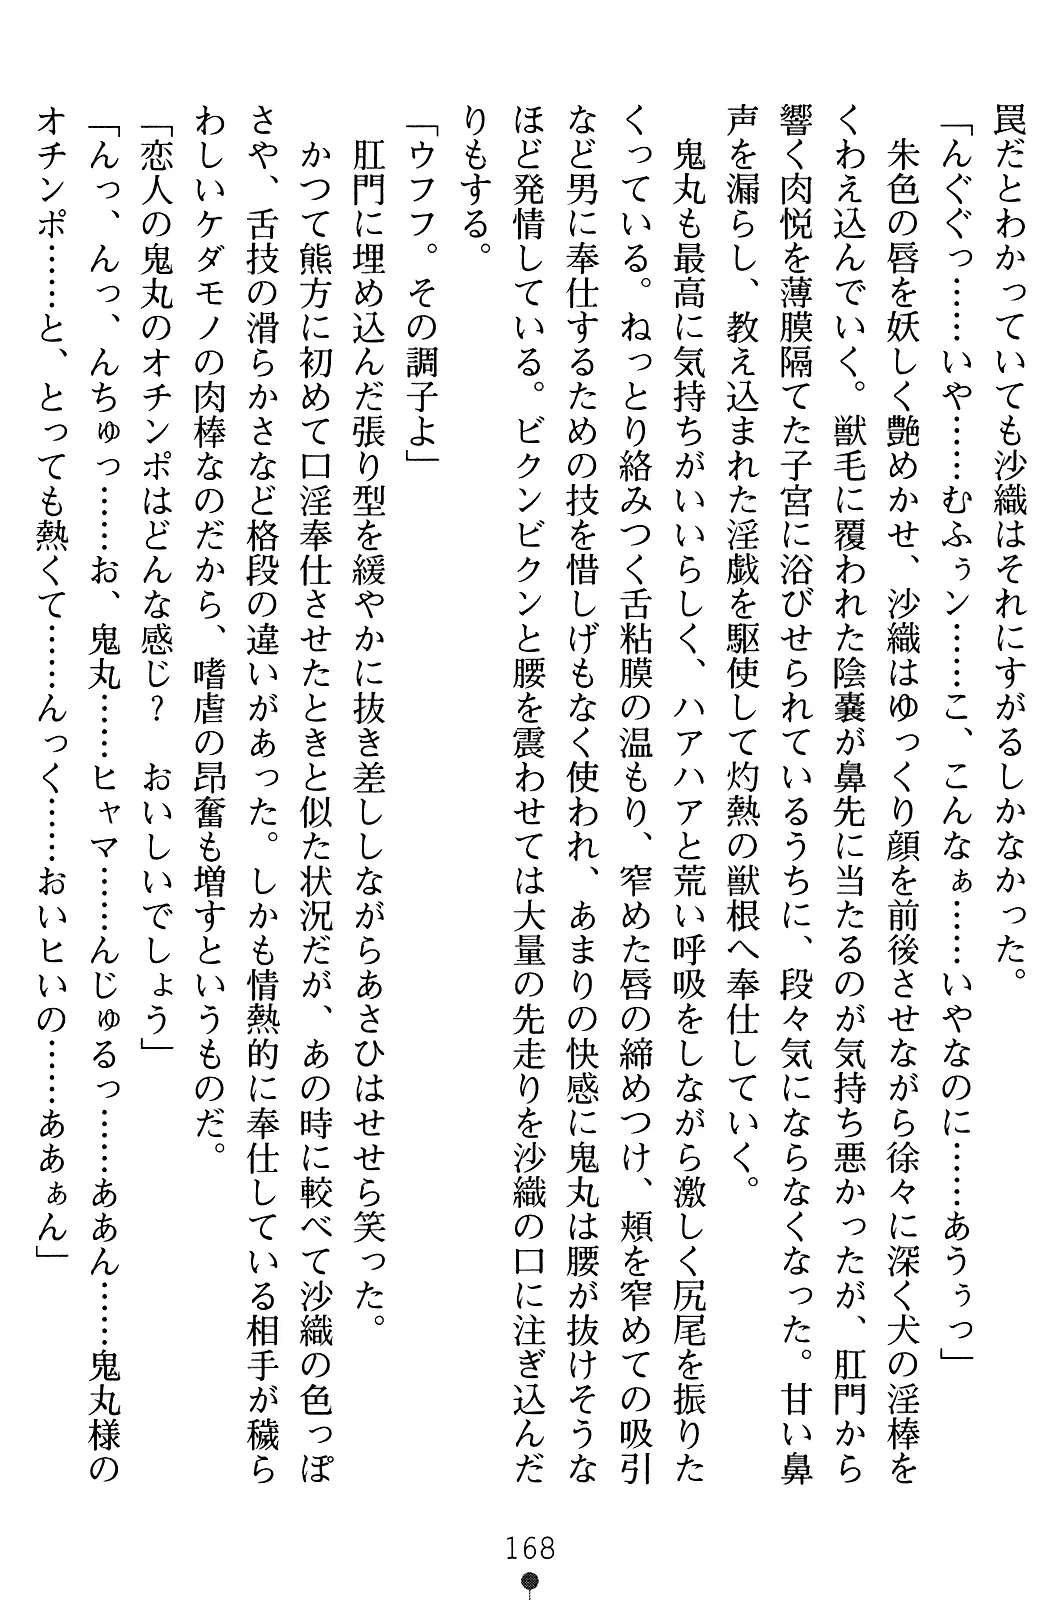 罠だとわかっていても沙織はそれにすがるしかなかった。
「んぐぐっ……いや……むふぅン……こ、こんなぁ……いやなのに……あうぅっ」
　朱色の唇を妖しく艶めかせ、沙織はゆっくり顔を前後させながら徐々に深く犬の淫棒を
くわえ込んでいく。獣毛に覆われた陰嚢が鼻先に当たるのが気持ち悪かったが、肛門から
響く肉悦を薄膜隔てた子宮に浴びせられているうちに、段々気にならなくなった。甘い鼻
声を漏らし、教え込まれた淫戯を駆使して灼熱の獣根へ奉仕していく。
　鬼丸も最高に気持ちがいいらしく、ハアハアと荒い呼吸をしながら激しく尻尾を振りた
くっている。ねっとり絡みつく舌粘膜の温もり、窄めた唇の締めつけ、頬を窄めての吸引
など男に奉仕するための技を惜しげもなく使われ、あまりの快感に鬼丸は腰が抜けそうな
ほど発情している。ビクンビクンと腰を震わせては大量の先走りを沙織の口に注ぎ込んだ
りもする。
「ウフフ。その調子よ」
　肛門に埋め込んだ張り型を緩やかに抜き差ししながらあさひはせせら笑った。
　かつて熊方に初めて口淫奉仕させたときと似た状況だが、あの時に較べて沙織の色っぽ
さや、舌技の滑らかさなど格段の違いがあった。しかも情熱的に奉仕している相手が穢ら
わしいケダモノの肉棒なのだから、嗜虐の昂奮も増すというものだ。
「恋人の鬼丸のオチンポはどんな感じ？　おいしいでしょう」
「んっ、んっ、んちゅっ……お、鬼丸……ヒャマ……んじゅるっ……ああん……鬼丸様の
オチンポ……と、とっても熱くて……んっく……おいヒいの……ああぁん」
168